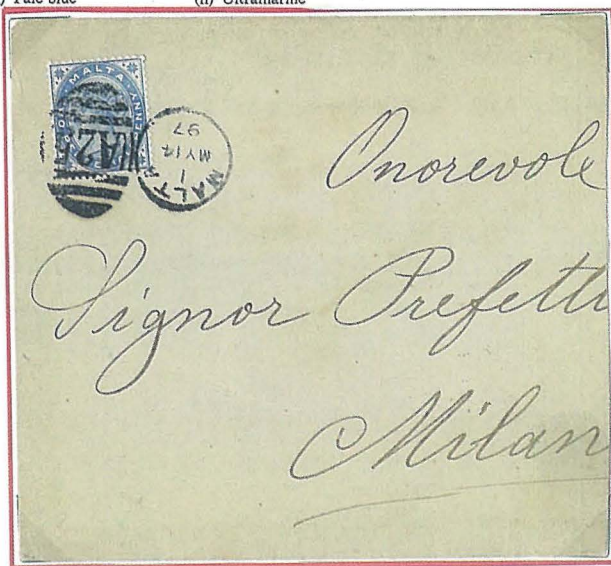 Pale blue (ii) Ultramarine
MALTA
A25
MALTA
1
MY 14
97
Onorevole
Signor Prefett
Milan